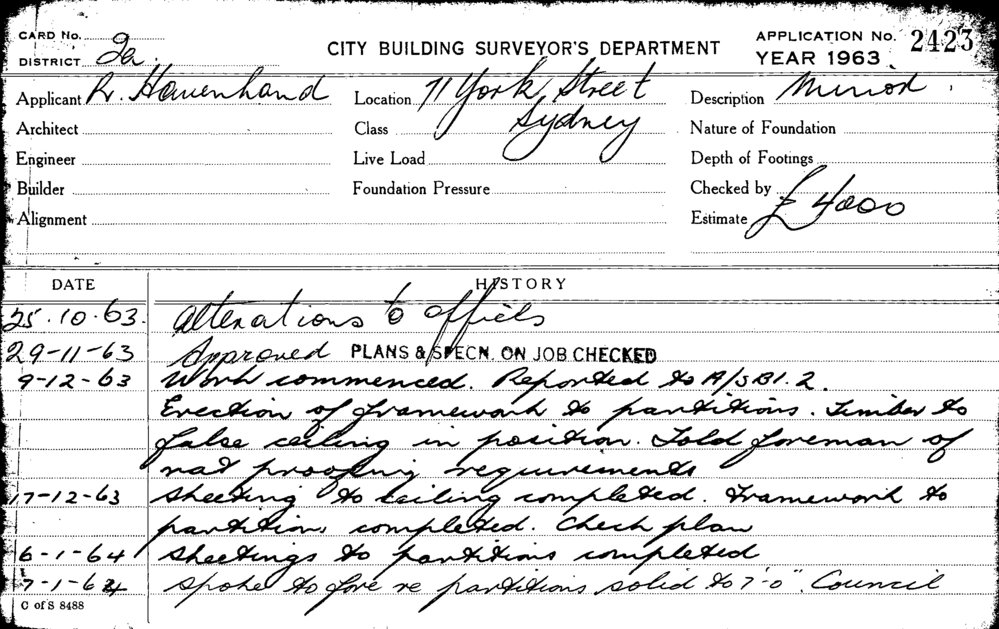 CARD No.
DISTRICT 2a.
CITY BUILDING SURVEYOR'S DEPARTMENT
APPLICATION No. 2423
YEAR 1963
Applicant R. Havenhand
Location 71 York Street
Sydney
Description Minor
Architect
Class
Nature of Foundation
Engineer
Live Load
Depth of Footings
Builder
Foundation Pressure
Checked by
Alignment
Estimate £ 4000
DATE HISTORY
25.10.63. Alterations to offices
29-11-63 Approved PLANS & SPECN. ON JOB CHECKED
9-12-63 Work commenced. Reported to A/SBI.2.
Erection of framework to partitions. Timber to
false ceiling in position. Told foreman of
rat proofing requirements
17-12-63 Sheeting to ceiling completed. Framework to
partitions completed. Check plan
6-1-64 Sheetings to partitions completed
7-1-64 Spoke to fore re partitions solid to 7'-0". Council
C of S 8488